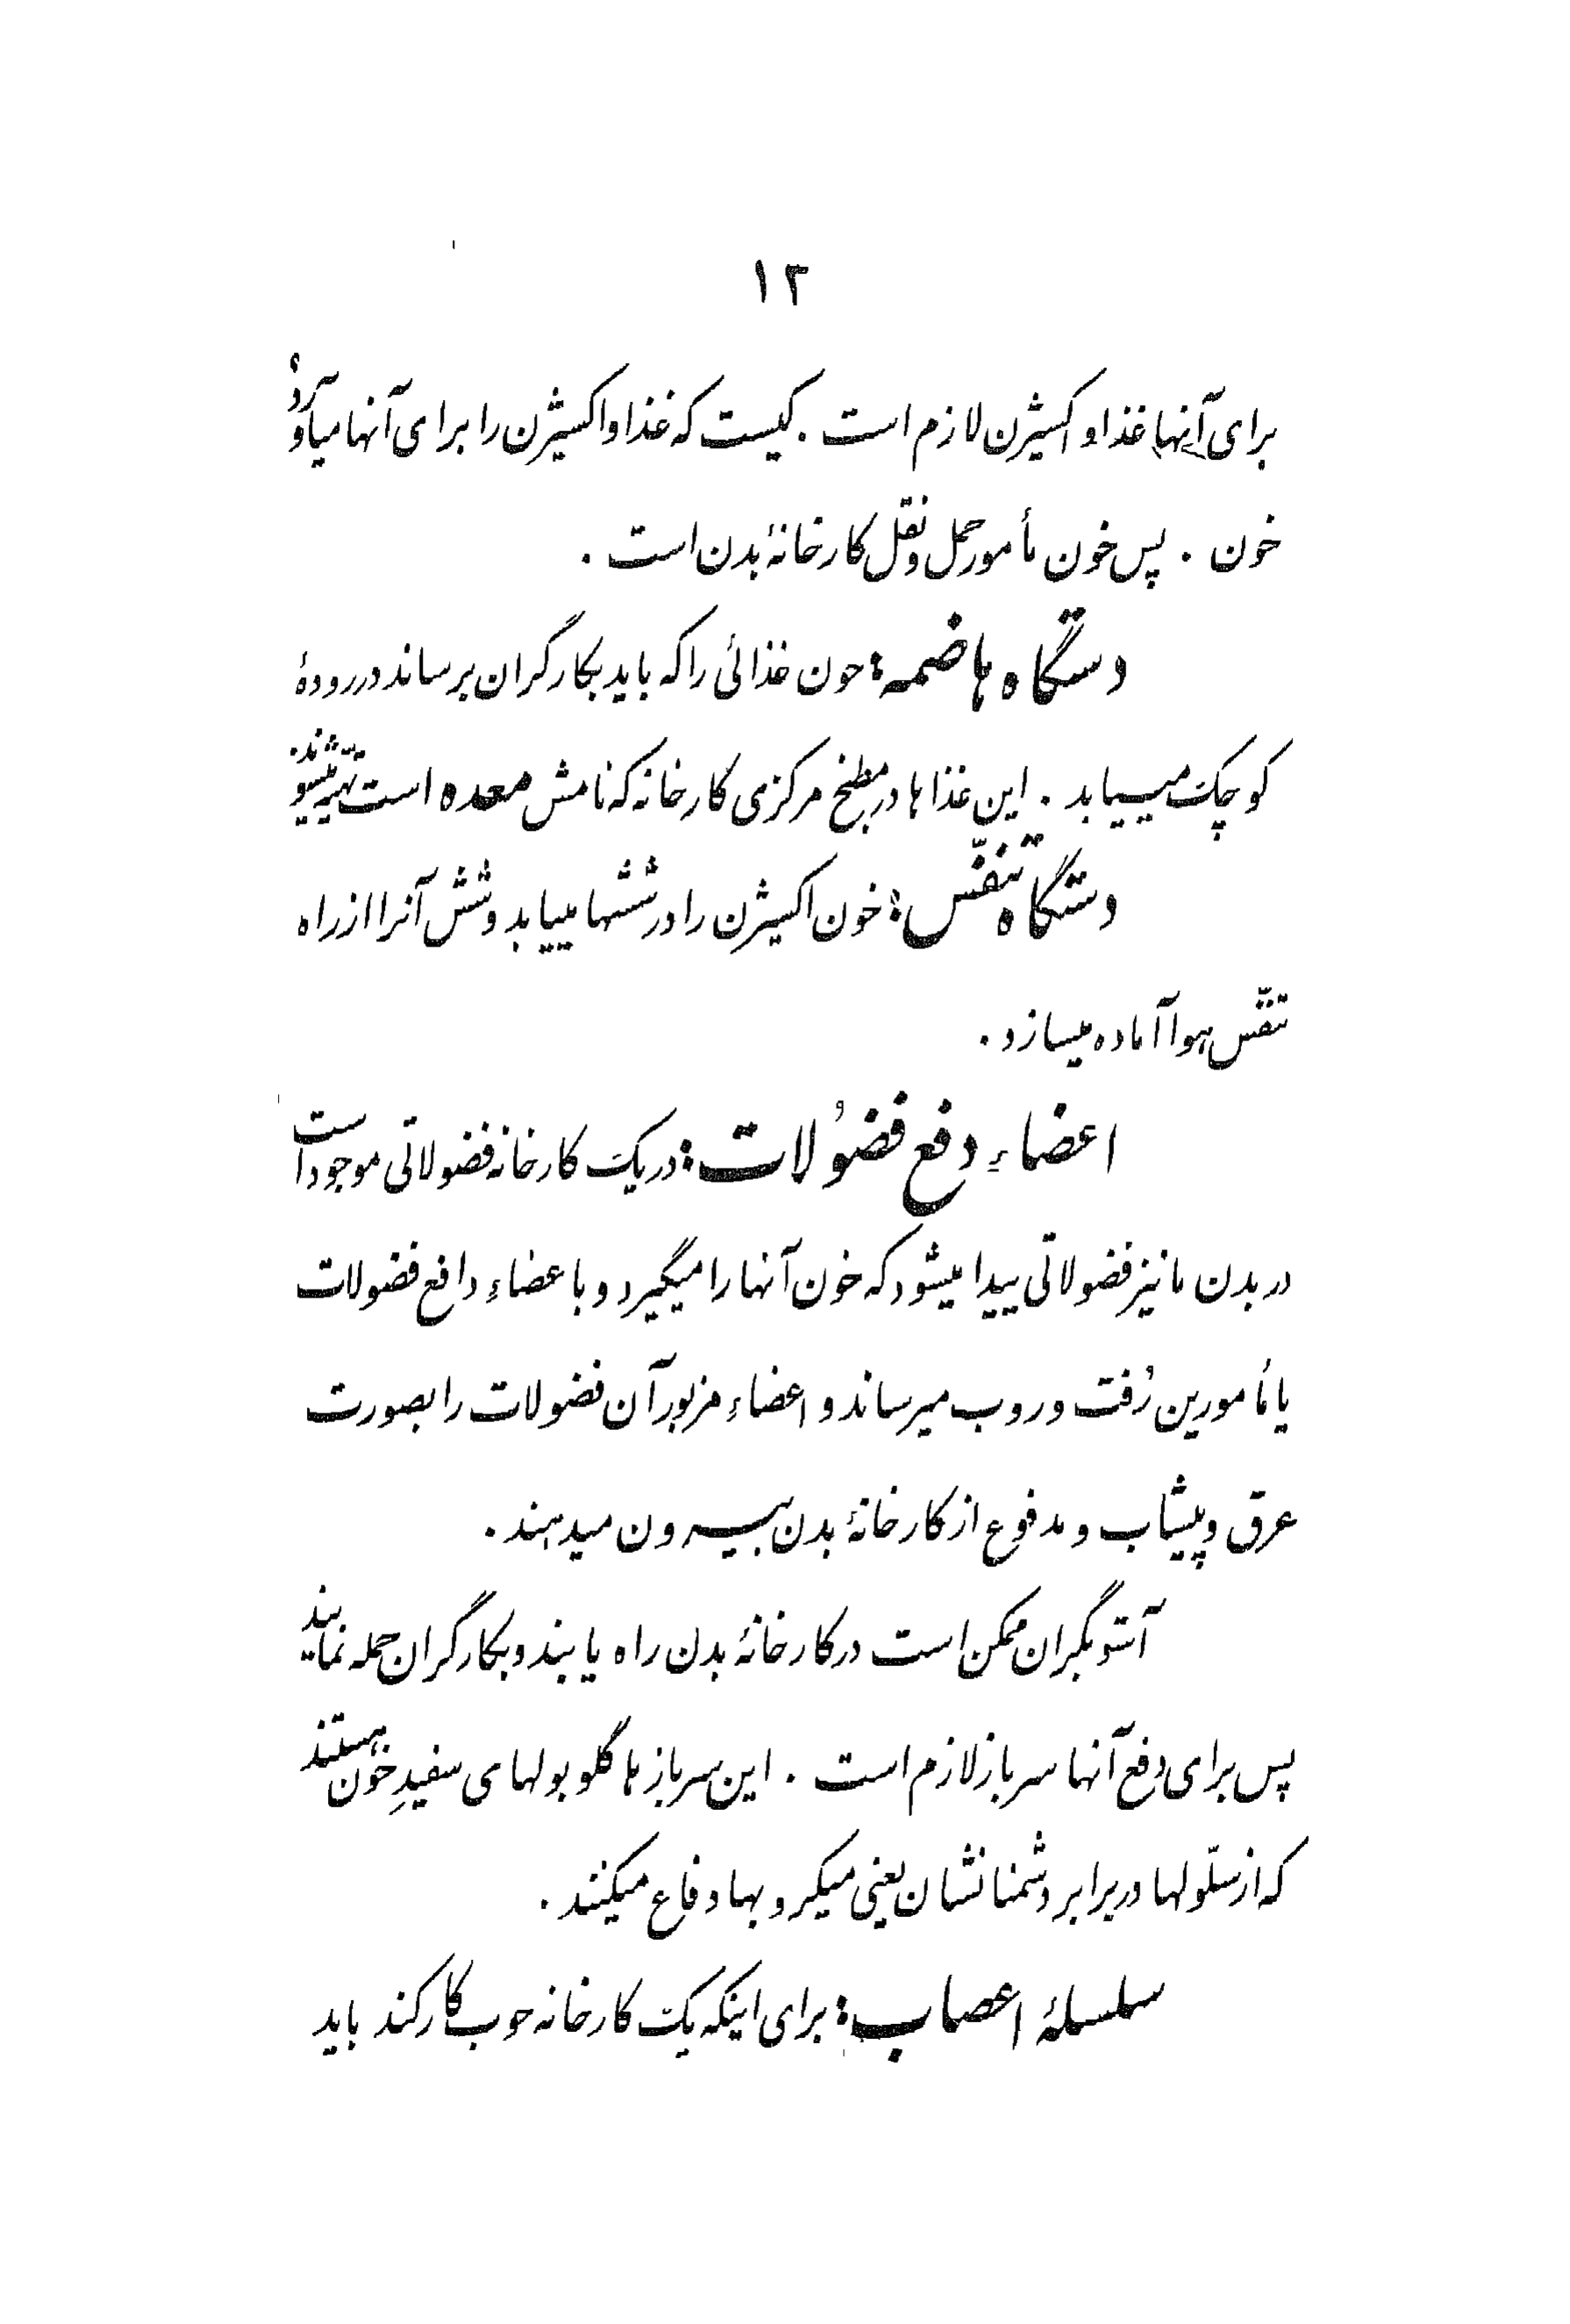 ۱۲
برای آنها غذا و اکسیژن لازم است . کیست که غذا و اکسیژن را برای آنها میآورد؟
خون . پس خون مأمور حمل و نقل کارخانهٔ بدن است .
دستگاه هاضمه : خون غذائی را که باید بکارگران برساند در رودهٔ
کوچک میییابد . این غذاها در مطبخ مرکزی کارخانه که نامش معده است تهیه میشوند .
دستگاه تنفّس : خون اکسیژن را در ششها مییابد و شش آنرا از راه
تنفّس هوا آماده میسازد .
اعضاءِ دفع فضُولات : در یک کارخانه فضولاتی موجود است
در بدن ما نیز فضولاتی پیدا میشود که خون آنها را میگیرد و باعضاءِ دافع فضولات
یا مأمورین رُفت و روب میرساند و اعضاءِ مزبور آن فضولات را بصورت
عرق و پیشاب و مدفوع از کارخانهٔ بدن بیرون میدهند .
آشوبگران ممکن است در کارخانهٔ بدن راه یابند و بکارگران حمله نمایند
پس برای دفع آنها سرباز لازم است . این سربازها گلوبولهای سفیدِ خون هستند
که از سلّولها در برابر دشمنانشان یعنی میکروبها دفاع میکنند .
سلسلهٔ اعصاب : برای اینکه یک کارخانه خوب کار کند باید